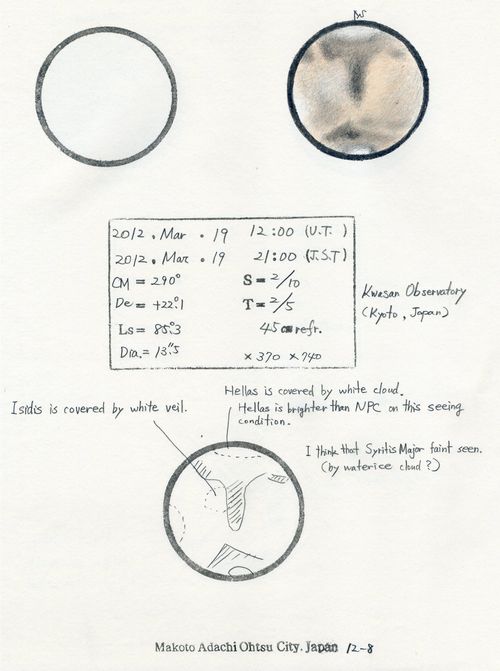 2012. Mar. 19 12:00 (U.T.)
2012. Mar. 19 21:00 (J.S.T)
CM = 290° S = 2/10
De = +22°.1 T = 2/5
Ls = 85°.3 45cm refr.
Dia. = 13".5 × 370 × 740
Kwasan Observatory
(Kyoto, Japan)
Hellas is covered by white cloud.
Isidis is covered by white veil.
Hellas is brighter than NPC on this seeing
condition.
I think that Syritis Major faint seen.
(by waterice cloud?)
Makoto Adachi Ohtsu City. Japan 12-8